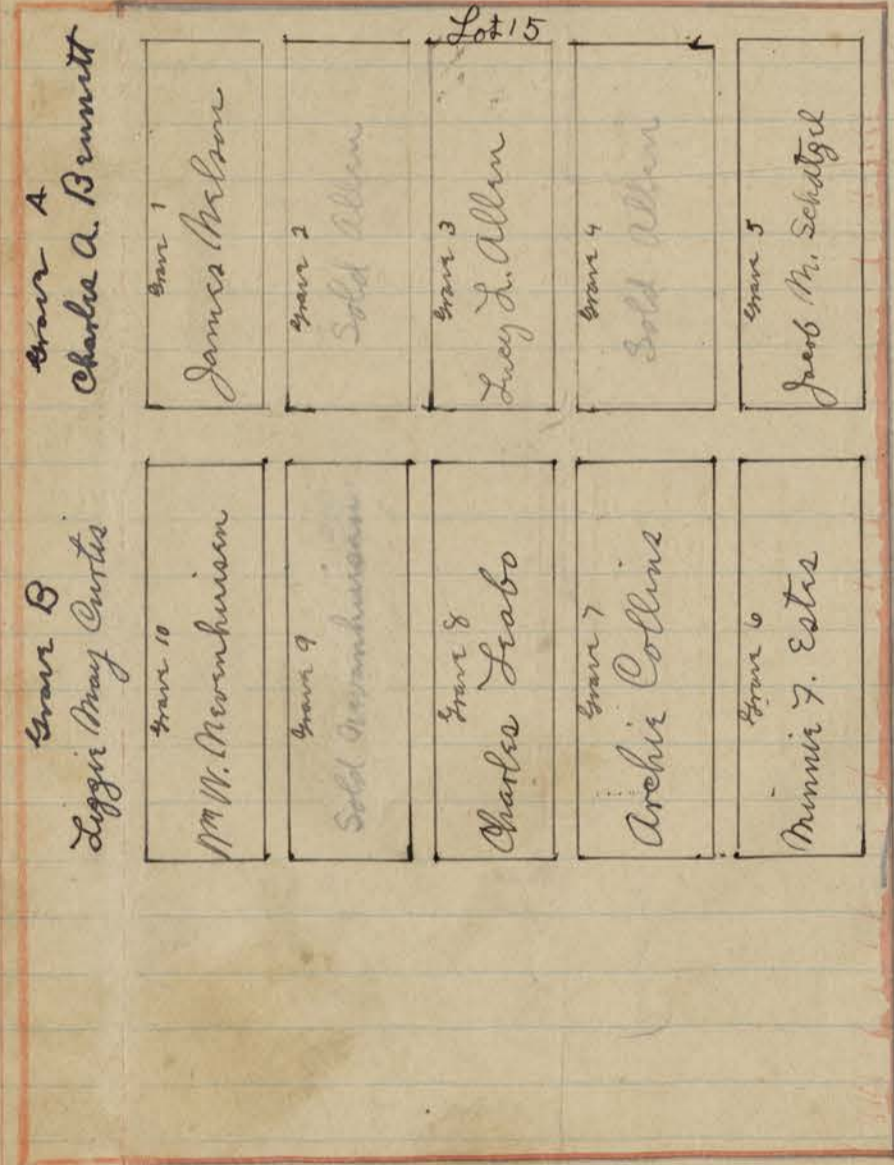 Lot 15
Grave A
Charles A. Bennett
Grave 1
James Nelson
Grave 2
Sold Allen
Grave 3
Lucy L. Allen
Grave 4
Sold Allen
Grave 5
Jacob M. Schatzel
Grave B
Lizzie May Curtis
Grave 10
Wm W. Nevenhuisen
Grave 9
Sold Nevanhuisen
Grave 8
Charles Leabo
Grave 7
Archie Collins
Grave 6
Minnie F. Estes